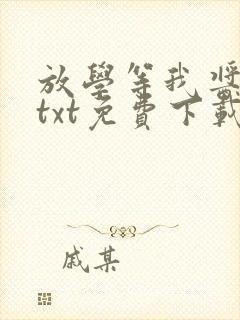 放學等我獎
txt免費下載
戚某